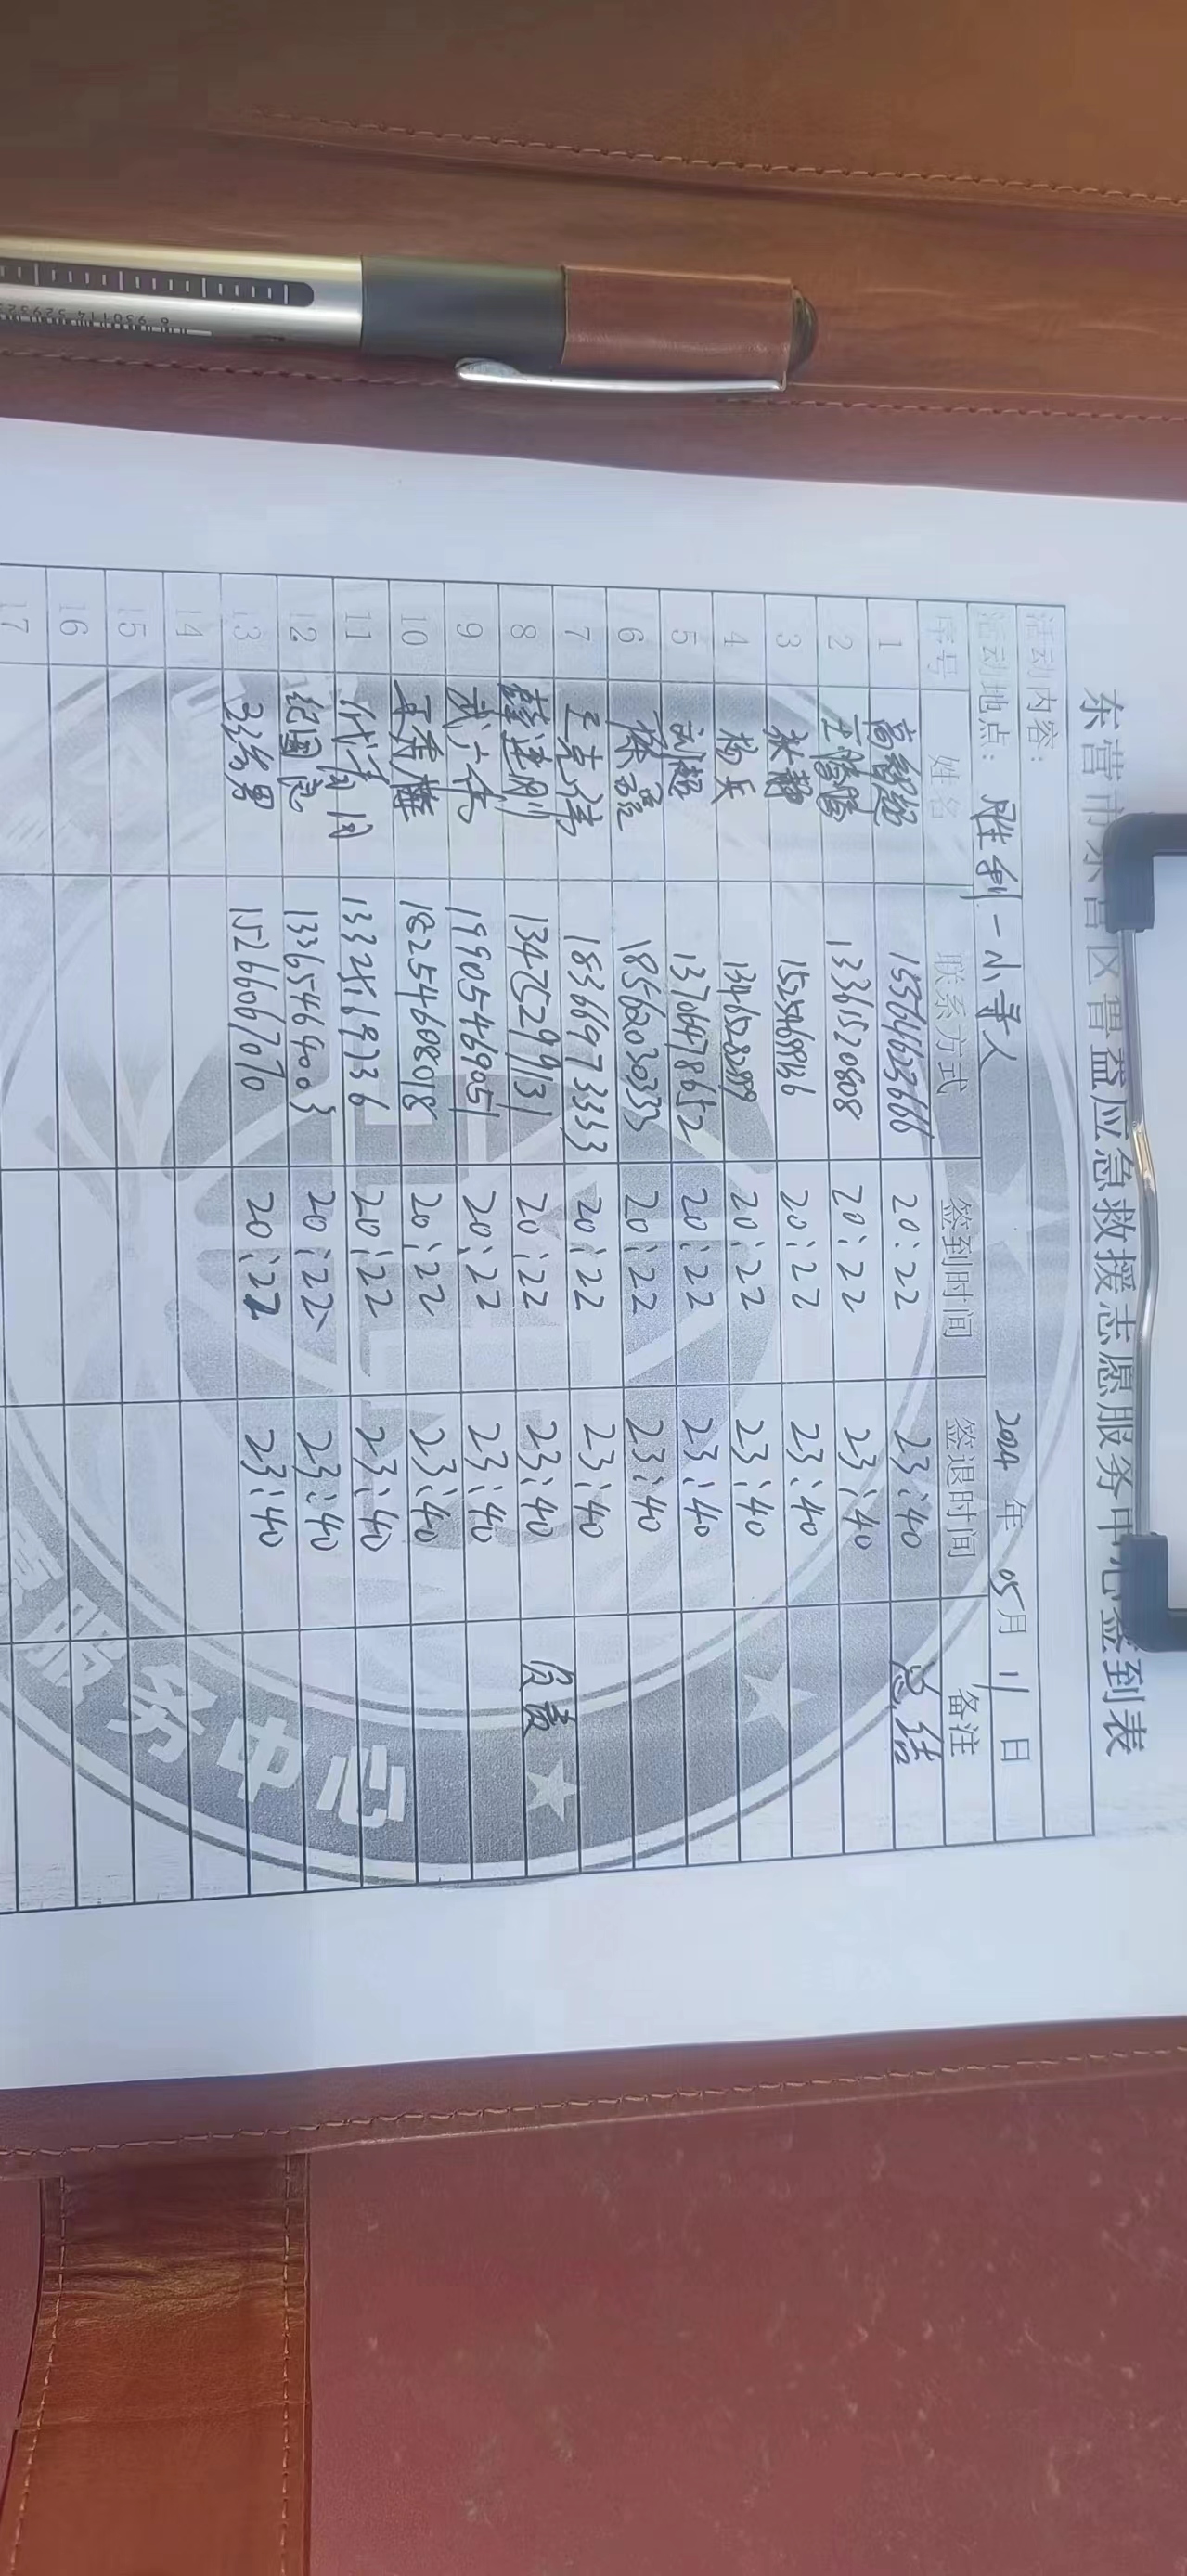 东营市东营区胃益应急救援志愿服务中心签到表
活动内容：
活动地点： 胜利一小寻人 2024 年 05 月 11 日
序号 姓名 联系方式 签到时间 签退时间 备注
1 高 15564623666 20:22 23:40 总结
2 王腾腾 13361520808 20:22 23:40
3 张静 20:22 23:40
4 杨兵 20:22 23:40
5 刘超 13706478652 20:22 23:40
6 徐 18562030333 20:22 23:40
7 王克伟 18366973333 20:22 23:40
8 薛建刚 13475299131 20:22 23:40 负责
9 武 19905469051 20:22 23:40
10 王秀 18254608018 20:22 23:40
11 代 20:22 23:40
12 纪国亮 13365464003 20:22 23:40
13 15266067070 20:22 23:40
14
15
16
17
服务中心
6 930114